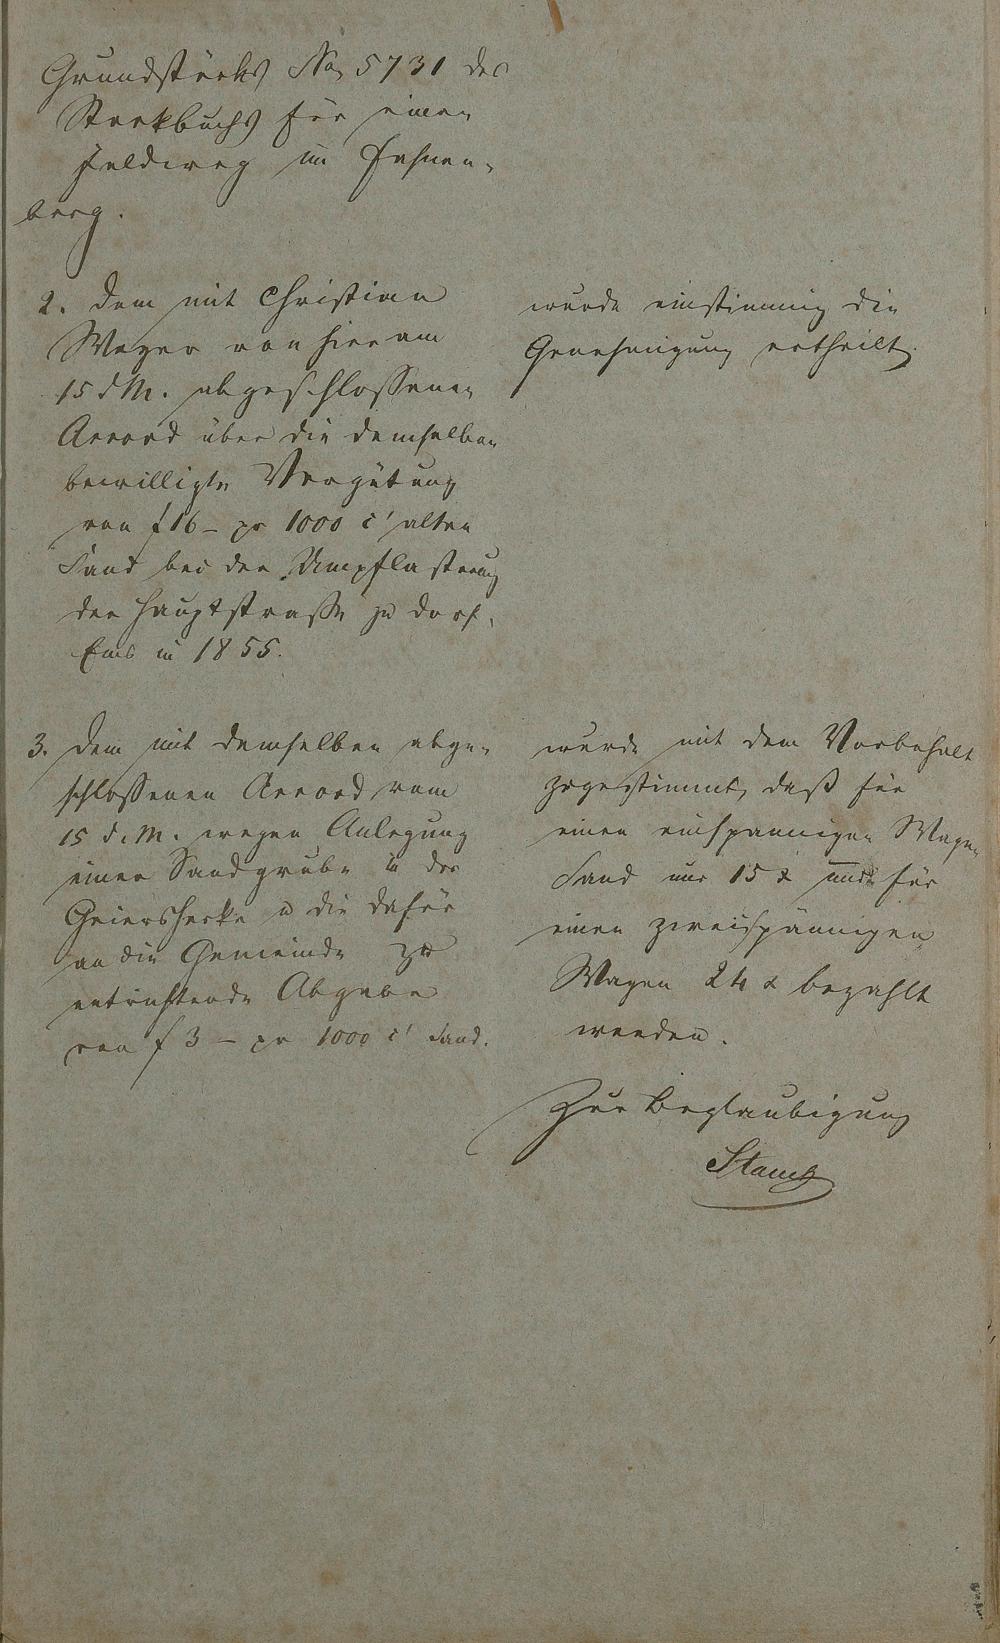 Grundstücks No 5731 des
Stockbuchs für einen
Feldweg im Hahnen-
berg.
2. dem mit Christian
Wayer von hier am
15 d M. abgeschlossenen
Accord über die demselben
bewilligte Vergütung
von f 16 – pr 1000 c' alten
Sand bei der Umpflasterung
der Hauptstraße zu Dorf-
Ems in 1855.
wurde einstimmig die
Genehmigung ertheilt.
3. dem mit demselben abge-
schlossenen Accord vom
15 d. M. wegen Anlegung
einer Sandgrube in der
Geiershecke u die dafür
an die Gemeinde zu
entrichtende Abgabe
von f 3 – pr 1000 c' Sand.
wurde mit dem Vorbehalt
zugestimmt, daß für
einen einspannigen Wagen
Sand nur 15 x und für
einen zweispännigen
Wagen 24 x bezahlt
werden.
Zur Beglaubigung